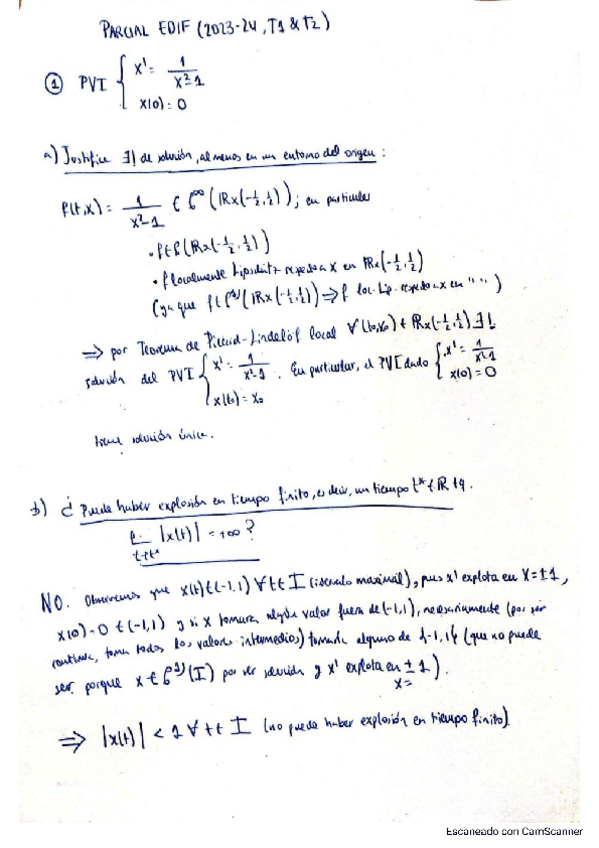 PARCIAL EDIF (2023-24, T1 & T2)
① PVI { x' = 1/(x²-1)
x(0) = 0
a) Justifica ∃! de solución, al menos en un entorno del origen:
f(t,x) = 1/(x²-1) ∈ C^∞(ℝx(-½,½)); en particular
• f ∈ C(ℝx(-½,½))
• f localmente Lipschitz respecto a x en ℝx(-½,½)
(ya que f ∈ C^1)(ℝx(-½,½)) ⇒ f loc. Lip. respecto a x en " " )
⇒ por Teorema de Picard-Lindelöf local ∀(t₀,x₀) ∈ ℝx(-½,½) ∃!
solución del PVI { x' = 1/(x²-1) . En particular, el PVI dado { x' = 1/(x²-1)
x(t₀) = x₀ x(0) = 0
tiene solución única.
b) ¿Puede haber explosión en tiempo finito, es decir, un tiempo t* ∈ ℝ tq.
lim |x(t)| = +∞?
t→t*
NO. Observemos que x(t) ∈ (-1,1) ∀t ∈ I (intervalo maximal), pues x' explota en x=±1,
x(0)=0 ∈ (-1,1) y si x tomara algún valor fuera de (-1,1), necesariamente (por ser
continua, toma todos los valores intermedios) tomaría alguno de {-1,1} (que no puede
ser porque x ∈ C^1)(I) por ser solución y x' explota en x=±1).
⇒ |x(t)| < 1 ∀t ∈ I (no puede haber explosión en tiempo finito)
Escaneado con CamScanner